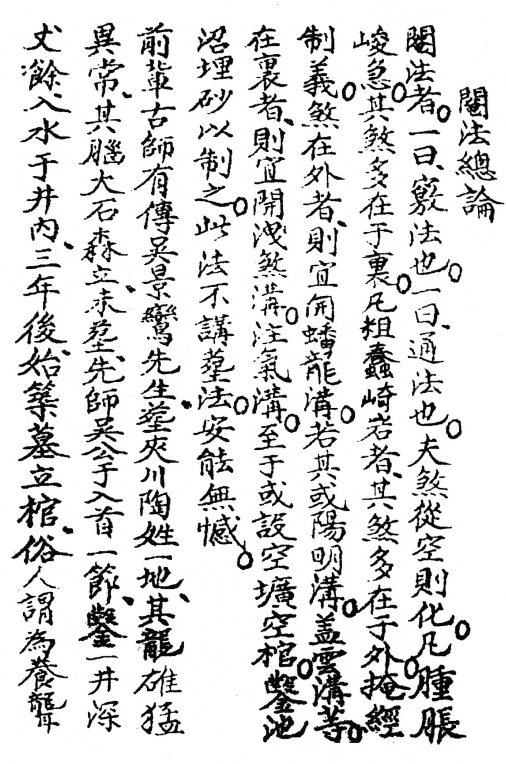 闢法總論
闢法者。一曰、竅法也。一曰、通法也。夫煞從空則化。凡腫脹
峻急。其煞多在于裏。凡粗蠢崎岩者、其煞多在于外。掩經
制義。煞在外者、則宜開蟠龍溝。若其或陽明溝。盖雲溝等。
在裏者、則宜開洩煞溝。注氣溝。至于或設空壙空棺。鑿池
沼埋砂以制之。此法不講塟法。安能無憾。
前輩古師有傳吳景鸞先生塟夾川陶姓一地、其龍雄猛
異常、其腦大石森立、未塟、先師吳公于入首一節、鑿一井深
丈餘、入水于井內、三年後、始築墓立棺、俗人謂為養聾